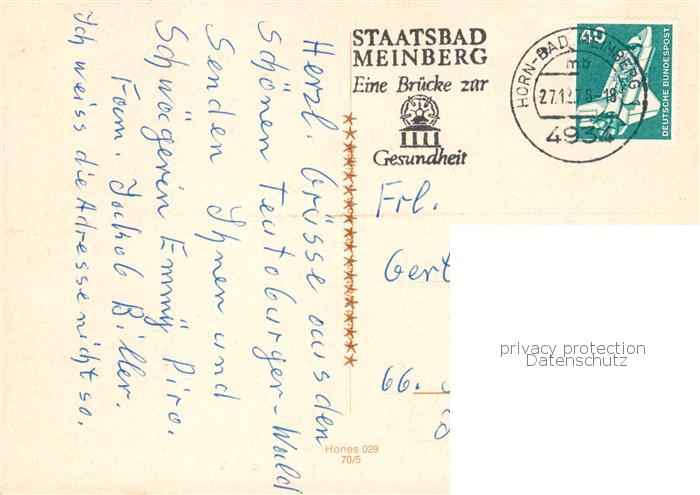 Herzl. Grüsse aus den
schönen Teutoburger-Wald
Senden Ihnen und
Schwägerin Emmy Piro.
Fam. Jakob Biller.
Ich weiss die Adresse nicht so.
STAATSBAD
MEINBERG
Eine Brücke zur
Gesundheit
HORN-BAD MEINBERG
mb
27.12.78-18
4934
40
DEUTSCHE BUNDESPOST
Frl.
Gert
66.
privacy protection
Datenschutz
Hones 029
70/5